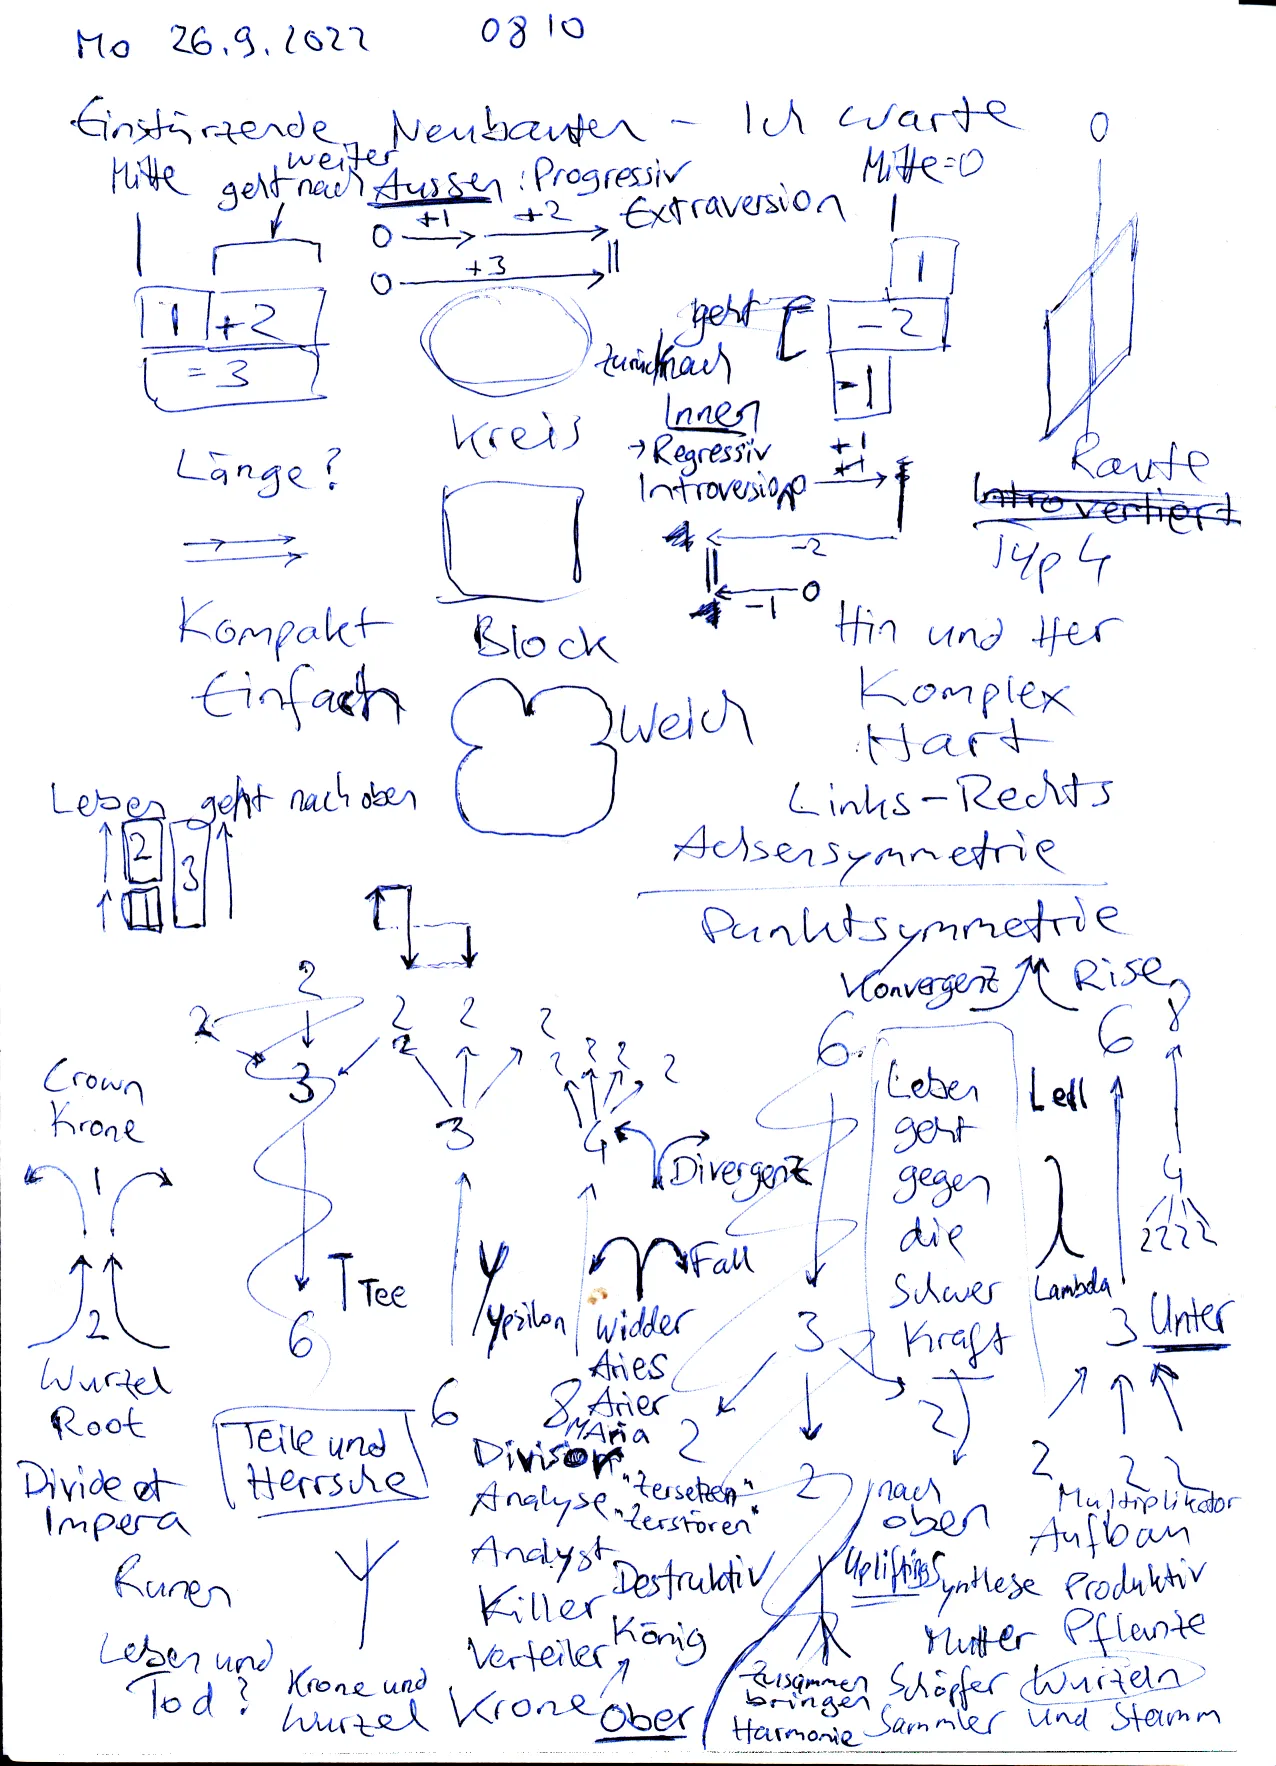 Mo 26.9.2022 0810
Einstürzende Neubauten – Ich warte
0
Mitte
weiter
geht nach Aussen : Progressiv
Mitte=0
+1 +2 Extraversion
0
+3
0
1 +2
= 3
1
geht
- 2
zurück nach
-1
Innen
Kreis
→ Regressiv
Introversion
+1
0
Länge?
Raute
Introvertiert
-2
Typ 4
-1 0
Kompakt
Block
Hin und Her
Einfach
Komplex
Weich
Hart
Links-Rechts
Leben geht nach oben
2
3
1
Achsensymmetrie
Punktsymmetrie
Konvergenz
Rise
2
2
2 2 2
2
3
2 2 2 2
6
6 8
Crown
Krone
3
4
Leben
geht
gegen
die
Schwer
Kraft
nach
oben
1
Divergenz
4
2222
2
Tee
Ypsilon
Fall
Lambda
6
3
3 Unter
Wurzel
Root
Widder
Aries
Arier
Maria
6
8
2
2
2
2 2 2
Teile und
Herrsche
Divide et
Impera
Division
Analyse
"Zersetzen"
"Zerstören"
Analyst
Destruktiv
Killer
König
Verteiler
Krone
Ober
Multiplikator
Aufbau
Uplifting
Synthese Produktiv
Mutter Pflanze
Runen
Leben und
Tod?
Krone und
Wurzel
Zusammen
bringen
Harmonie
Schöpfer
Sammler
Wurzeln
und Stamm